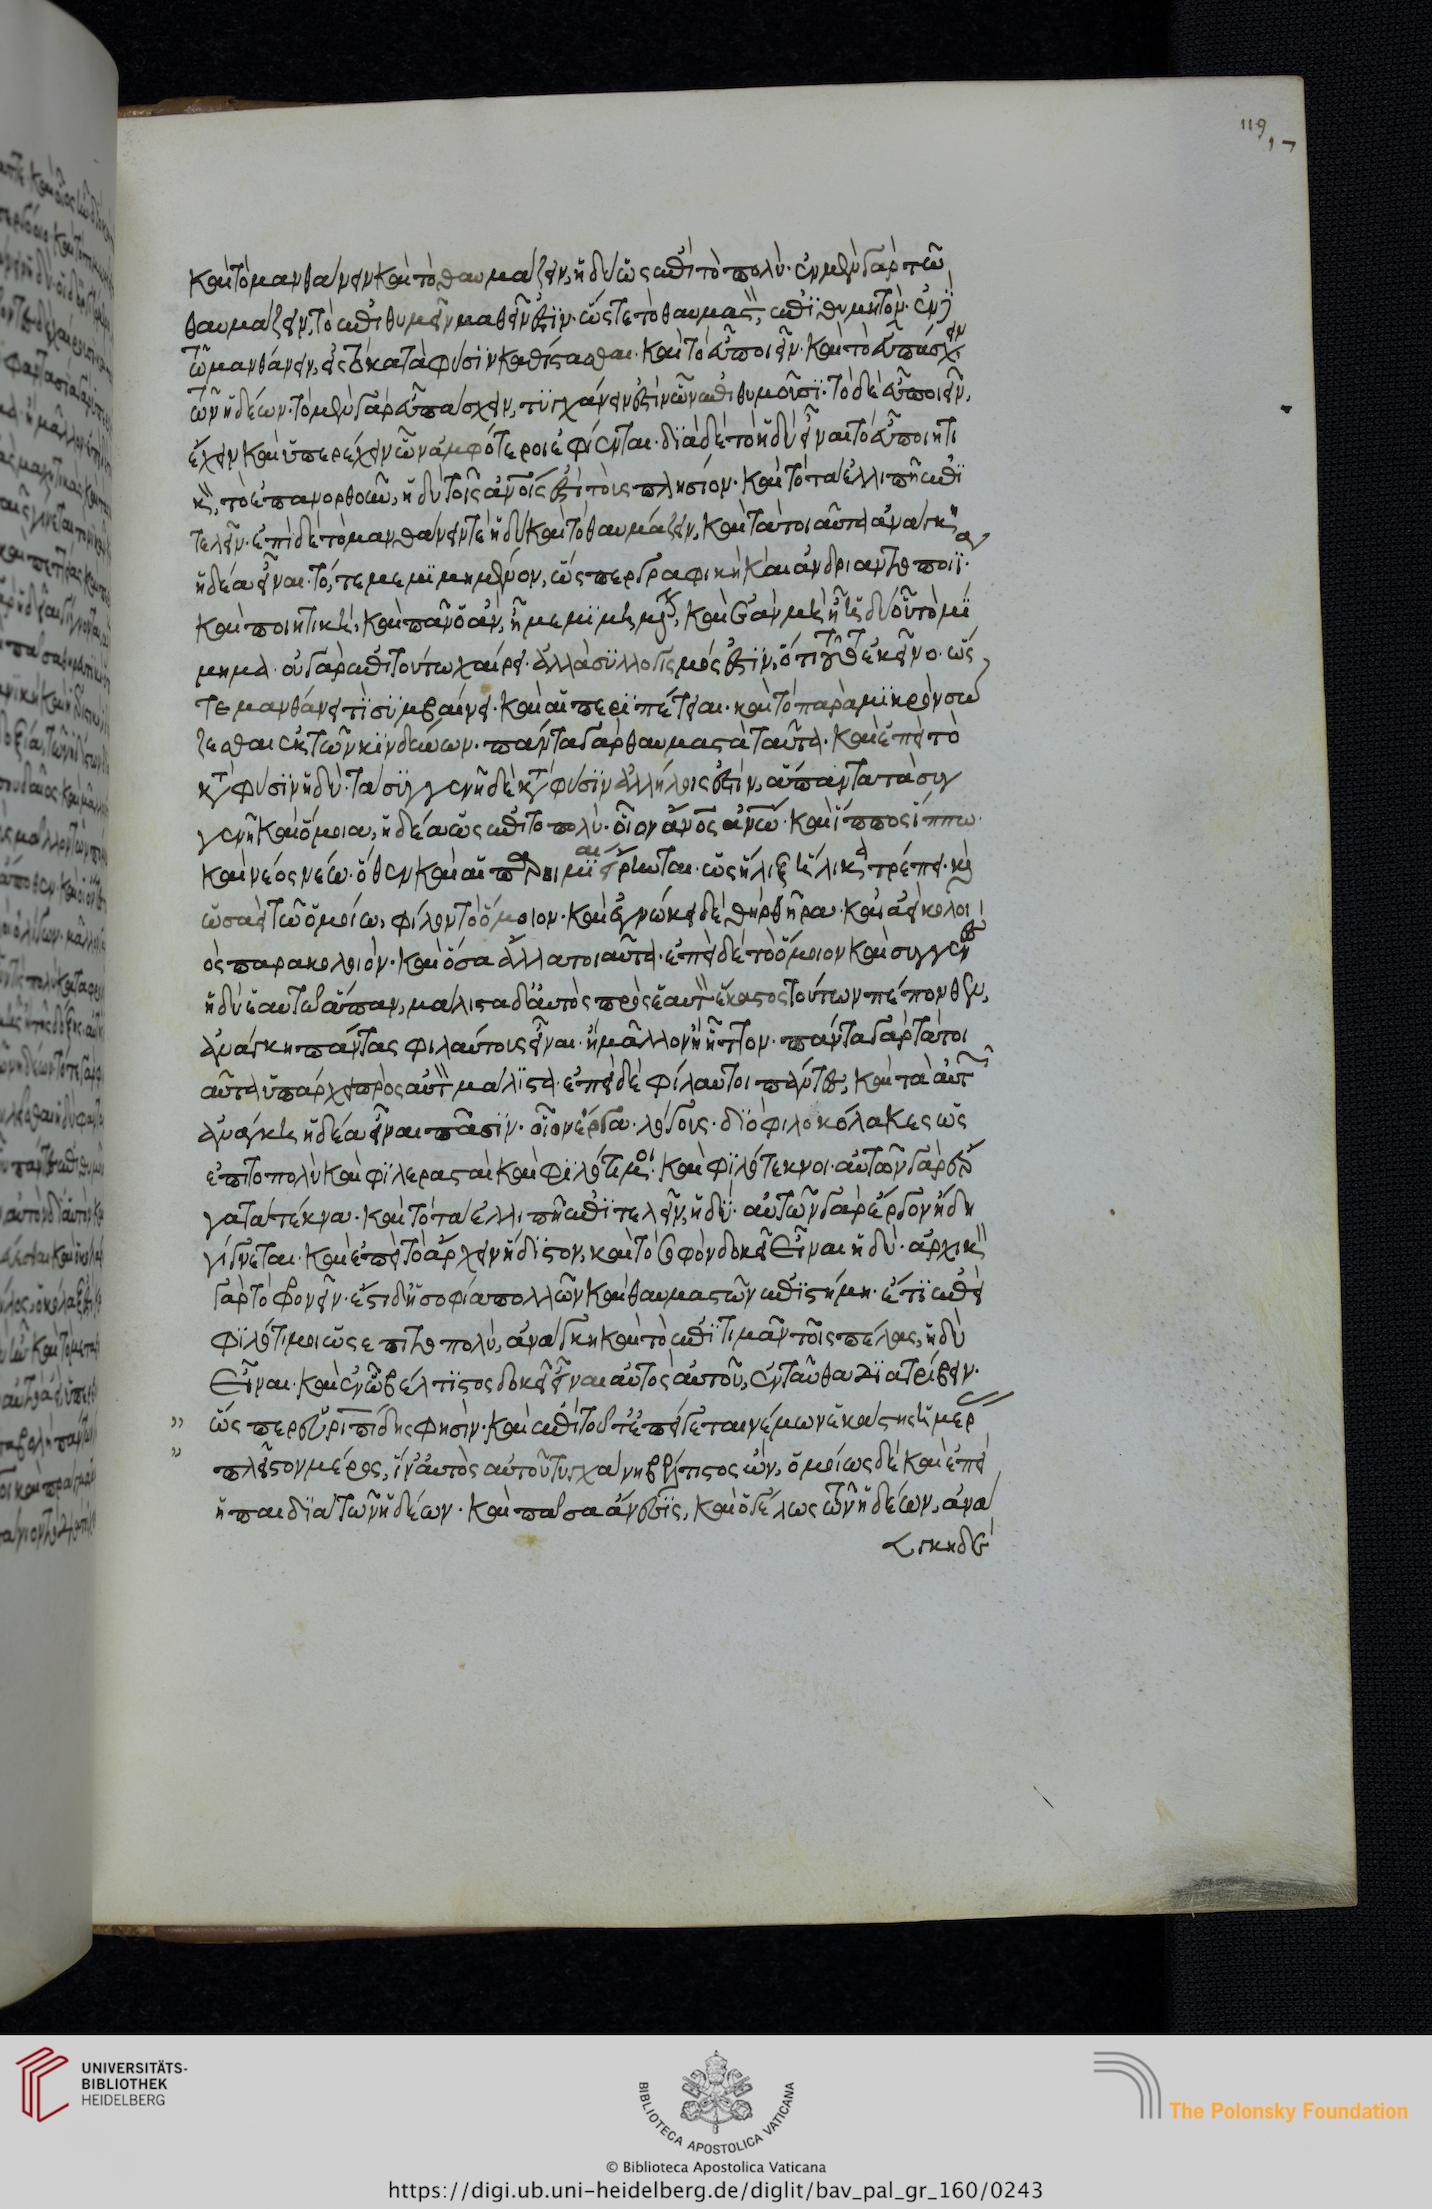 119
καὶ τὸ μανθάνειν καὶ τὸ θαυμάζειν, ἡδὺ ὡς ἐπὶ τὸ πολύ· ἐν μὲν γὰρ τῶ
θαυμάζειν, τὸ ἐπιθυμεῖν μαθεῖν ἐστὶν· ὥστε τὸ θαυμαστὸν, ἐπιθυμητόν· ἐν
τῶ μανθάνειν, εἰς τὸ κατὰ φύσιν καθίστασθαι· καὶ τὸ εὖ ποιεῖν· καὶ τὸ εὖ πάσχειν
τῶν ἡδέων· τὸ μὲν γὰρ εὖ πάσχειν, τυγχάνειν ἐστὶν ὧν ἐπιθυμοῦσι· τὸ δὲ εὖ ποιεῖν,
ἔχειν καὶ ὑπερέχειν ὧν ἀμφότεροι ἐφίενται· διὰ δὲ τὸ ἡδὺ εἶναι τὸ εὖ ποιητι
κὸν, τὸ ἐπανορθοῦν, ἡδὺ τοῖς ἀνοις ἐστὶ τοὺς πλησίον· καὶ τὸ τὰ ἐλλιπῆ ἐπι
τελεῖν· ἐπεὶ δὲ τὸ μανθάνειν τε ἡδὺ καὶ τὸ θαυμάζειν, καὶ τὰ τοιαῦτα ἀνάγκη
ἡδέα εἶναι· τό, τε μεμιμημένον, ὥσπερ γραφικὴ καὶ ἀνδριαντοποιί·
καὶ ποιητικὴ, καὶ πᾶν ὃ ἂν, εὖ μεμιμημένον, κἂν μὴ ᾖ ἡδὺ αὐτὸ μί
μημα· οὐ γὰρ ἐπὶ τούτω χαίρει· ἀλλὰ συλλογισμός ἐστὶν, ὅτι τοῦτο ἐκεῖνο· ὥσ
τε μανθάνειν τὶ συμβαίνει· καὶ αἱ περιπέτειαι· καὶ τὸ παρὰ μικρὸν σώ
ζεσθαι ἐκ τῶν κινδύνων· πάντα γὰρ θαυμαστὰ ταῦτα· καὶ ἐπεὶ τὸ
κατὰ φύσιν ἡδύ· τὰ συγγενῆ δὲ κατὰ φύσιν ἀλλήλοις ἐστίν, ἅπαντα τὰ συγ
γενῆ καὶ ὅμοια, ἡδέα ὡς ἐπὶ τὸ πολύ· οἷον ἄνος ἀνω· καὶ ἵππος ἵππω·
καὶ νέος νέω· ὅθεν καὶ αἱ παροιμίαι εἴρηνται· ὡς ἧλιξ ἥλικα τρέπει· καὶ
ὡς αἰεὶ τῶ ὁμοίω, φίλον τὸ ὅμοιον· καὶ ἔγνωκε δὲ θὴρ θῆρα· καὶ ἀεὶ κολοι
ὸς παρὰ κολοιόν· καὶ ὅσα ἄλλα τοιαῦτα· ἐπεὶ δὲ τὸ ὅμοιον καὶ συγγενὲς
ἡδὺ ἑαυτῶ ἅπαν, μάλιστα δ' αὐτὸς πρὸς ἑαυτὸν ἕκαστος τούτων πέπονθεν,
ἀνάγκη πάντας φιλαύτους εἶναι· ἢ μᾶλλον ἢ ἧττον· πάντα γὰρ τὰ τοι
αῦτα ὑπάρχει πρὸς αὑτὸν μάλιστα· ἐπεὶ δὲ φίλαυτοι πάντες, καὶ τὰ αὑτῶν
ἀνάγκη ἡδέα εἶναι πᾶσιν· οἷον ἔργα· λόγους· διὸ φιλοκόλακες ὡς
ἐπιτοπολὺ καὶ φιλερασταὶ καὶ φιλότιμοι· καὶ φιλότεκνοι· αὐτῶν γὰρ ἔρ
γα τὰ τέκνα· καὶ τὸ τὰ ἐλλιπῆ ἐπιτελεῖν, ἡδύ· αὐτῶν γὰρ ἔργον ἤδη
γίγνεται· καὶ ἐπεὶ τὸ ἄρχειν ἥδιστον, καὶ τὸ σοφὸν δοκεῖν εἶναι ἡδύ· ἀρχικὸν
γὰρ τὸ φρονεῖν· ἔστι δ' ἡ σοφία πολλῶν καὶ θαυμαστῶν ἐπιστήμη· ἔτι ἐπεὶ
φιλότιμοι ὡς ἐπιτοπολύ, ἀνάγκη καὶ τὸ ἐπιτιμᾶν τοῖς πέλας, ἡδὺ
εἶναι· καὶ ἐν ὧ βέλτιστος δοκεῖ εἶναι αὐτὸς αὑτοῦ, ἐνταῦθα διατρίβειν·
ὥσπερ εὐριπίδης φησίν· καὶ ἐπὶ τοῦτ' ἐπείγεται νέμων ἑκάστης ἡμέρ
πλεῖστον μέρος, ἵν' αὐτὸς αὑτοῦ τυγχάνη βέλτιστος ὤν, ὁμοίως δὲ καὶ ἐπεὶ
ἡ παιδιὰ τῶν ἡδέων· καὶ πᾶσα ἄνεσις, καὶ ὁ γέλως τῶν ἡδέων, ἀνά
γκη δὲ
UNIVERSITÄTS-
BIBLIOTHEK
HEIDELBERG
BIBLIOTECA APOSTOLICA VATICANA
© Biblioteca Apostolica Vaticana
The Polonsky Foundation
https://digi.ub.uni-heidelberg.de/diglit/bav_pal_gr_160/0243